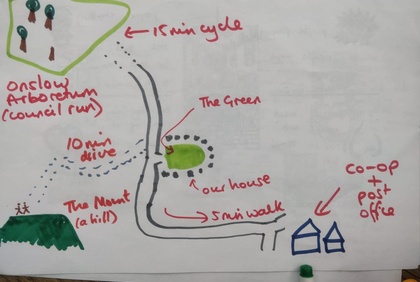 15 min cycle
Onslow
Arboretum
(council run)
The Green
10 min
drive
Co-op
+
post
office
our house
The Mount
(a hill)
5 min walk